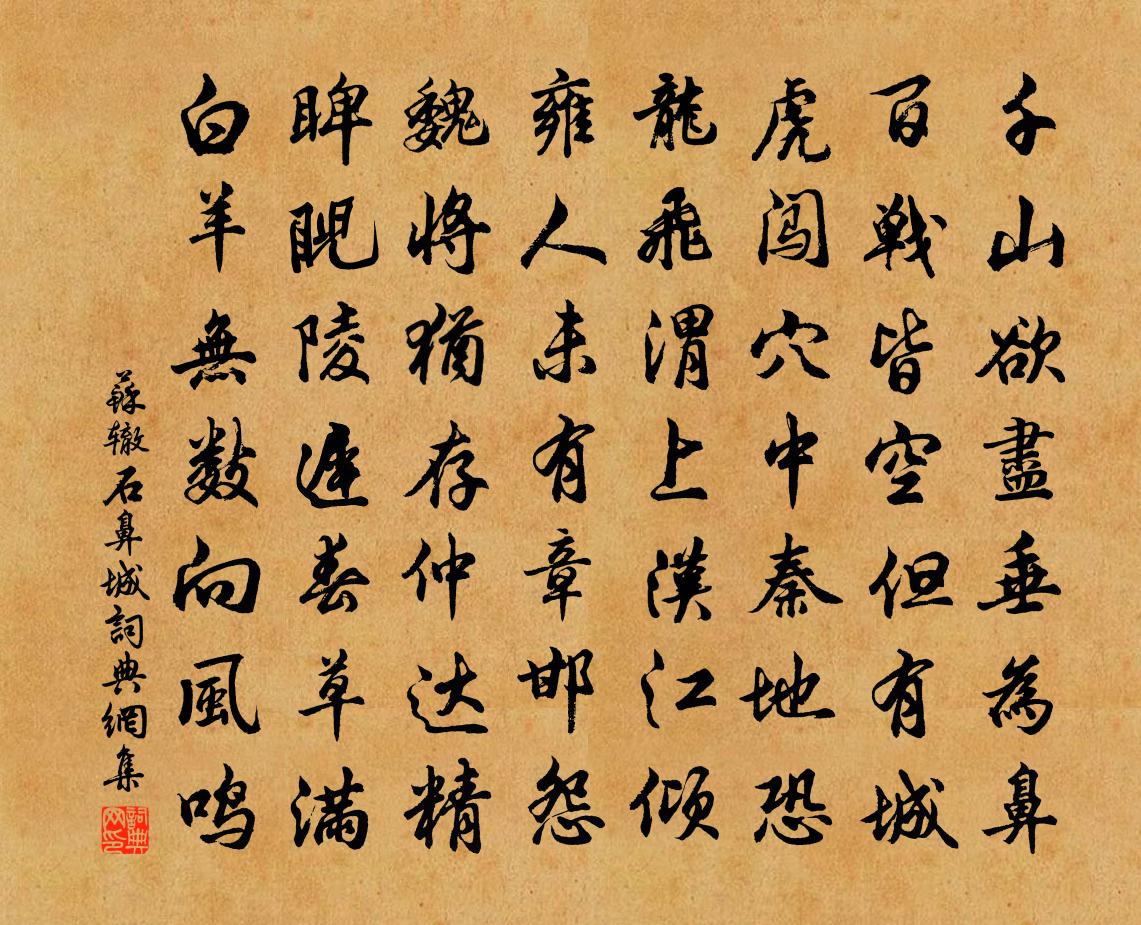 千山欲盡垂為鼻
百戰皆空但有城
虎闯穴中秦地恐
龍飛渭上漢江傾
雍人未有章邯怨
魏將猶存仲达精
睥睨陵遲春草满
白羊無数向風鸣
蘇辙石鼻城詞典網集
詞典网印